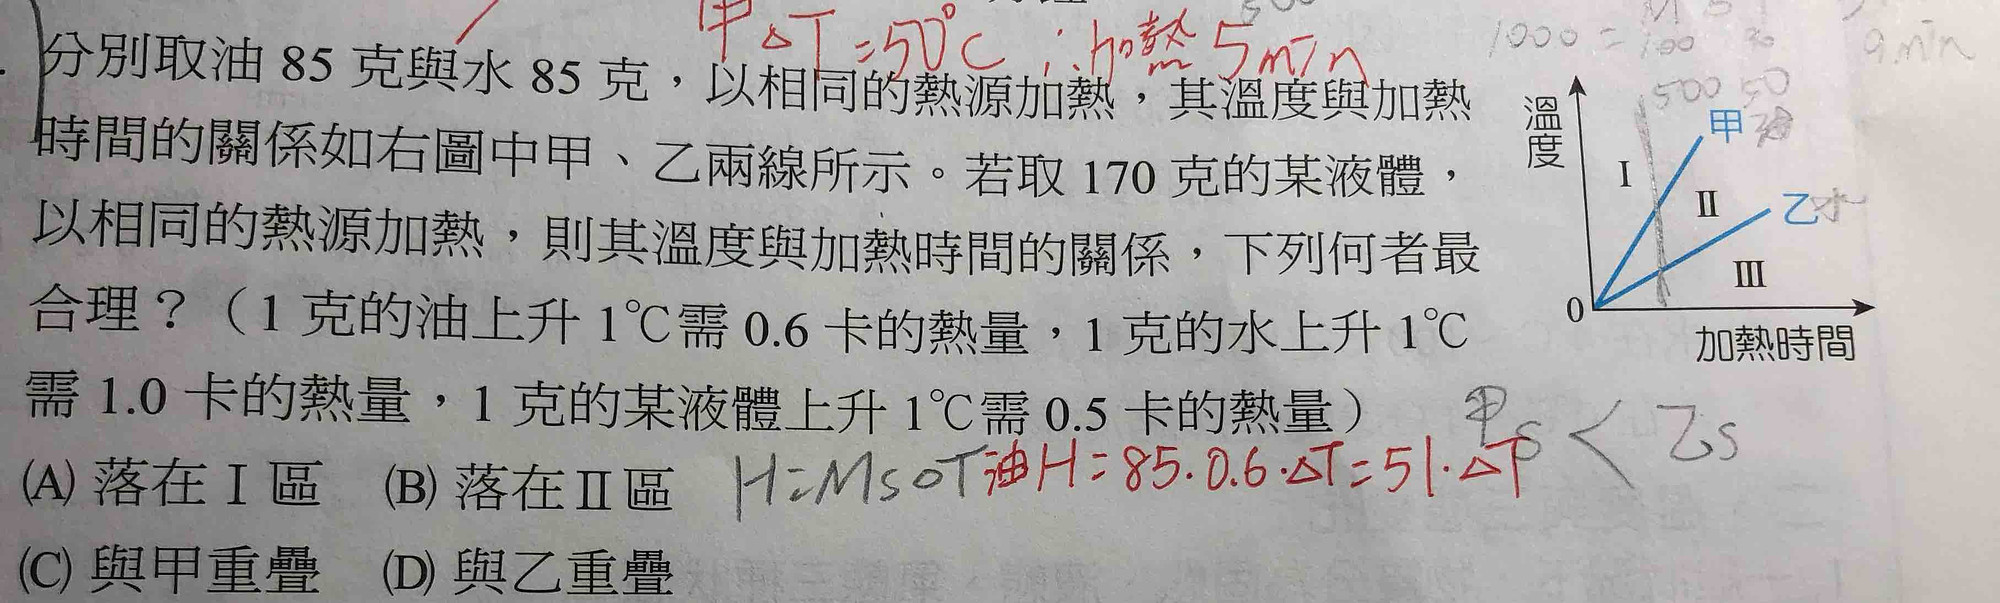 甲ΔT=50℃ ∴加熱5min
1000=
100
9min
分別取油 85 克與水 85 克，以相同的熱源加熱，其溫度與加熱
時間的關係如右圖中甲、乙兩線所示。若取 170 克的某液體，
以相同的熱源加熱，則其溫度與加熱時間的關係，下列何者最
合理？（1 克的油上升 1℃需 0.6 卡的熱量，1 克的水上升 1℃
需 1.0 卡的熱量，1 克的某液體上升 1℃需 0.5 卡的熱量）
(A) 落在 I 區 (B) 落在 II 區
(C) 與甲重疊 (D) 與乙重疊
H=MsΔT
油H=85.0.6.ΔT=51.ΔT
甲s<乙s
溫度
500 50
甲 油
I
II
乙 水
III
0
加熱時間